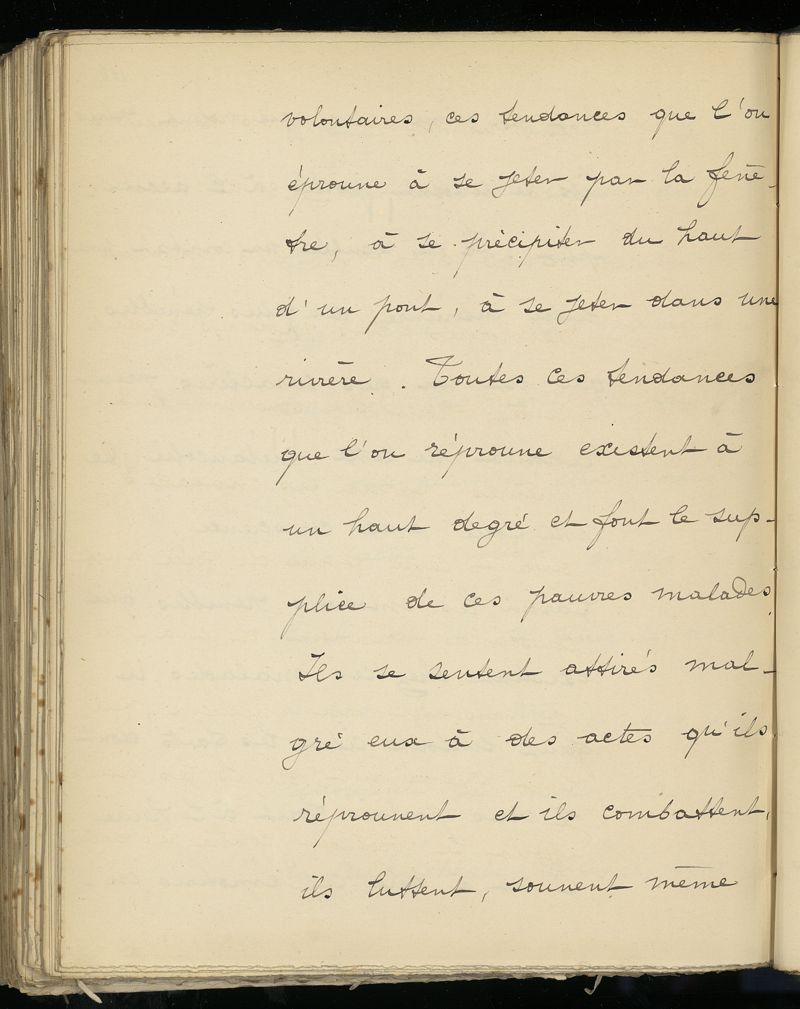 volontaires, ces tendances que l'on
éprouve à se jeter par la fenê-
tre, à se précipiter du haut
d'un pont, à se jeter dans une
rivière. Toutes ces tendances
que l'on réprouve existent à
un haut degré et font le sup-
plice de ces pauvres malades.
Ils se sentent attirés mal-
gré eux à des actes qu'ils
réprouvent et ils combattent,
ils luttent, souvent même